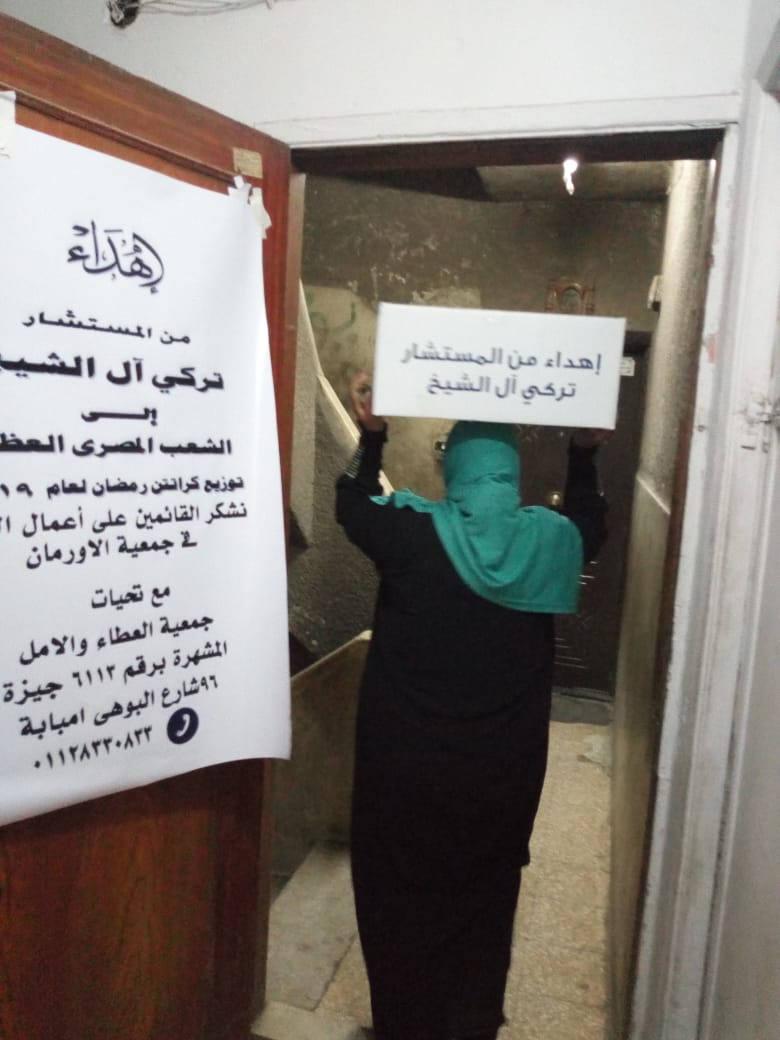 إهداء
من المستشار
تركي آل الشيخ
إلى
الشعب المصرى
توزيع كراتن رمضان لعام
نشكر القائمين على أعمال
في جمعية الاورمان
مع تحيات
جمعية العطاء والامل
المشهرة برقم ٦١١٣ جيزة
٩٦ شارع البوهى امبابة
٠١١٢٨٣٣٠٨٣٣
إهداء من المستشار
تركي آل الشيخ